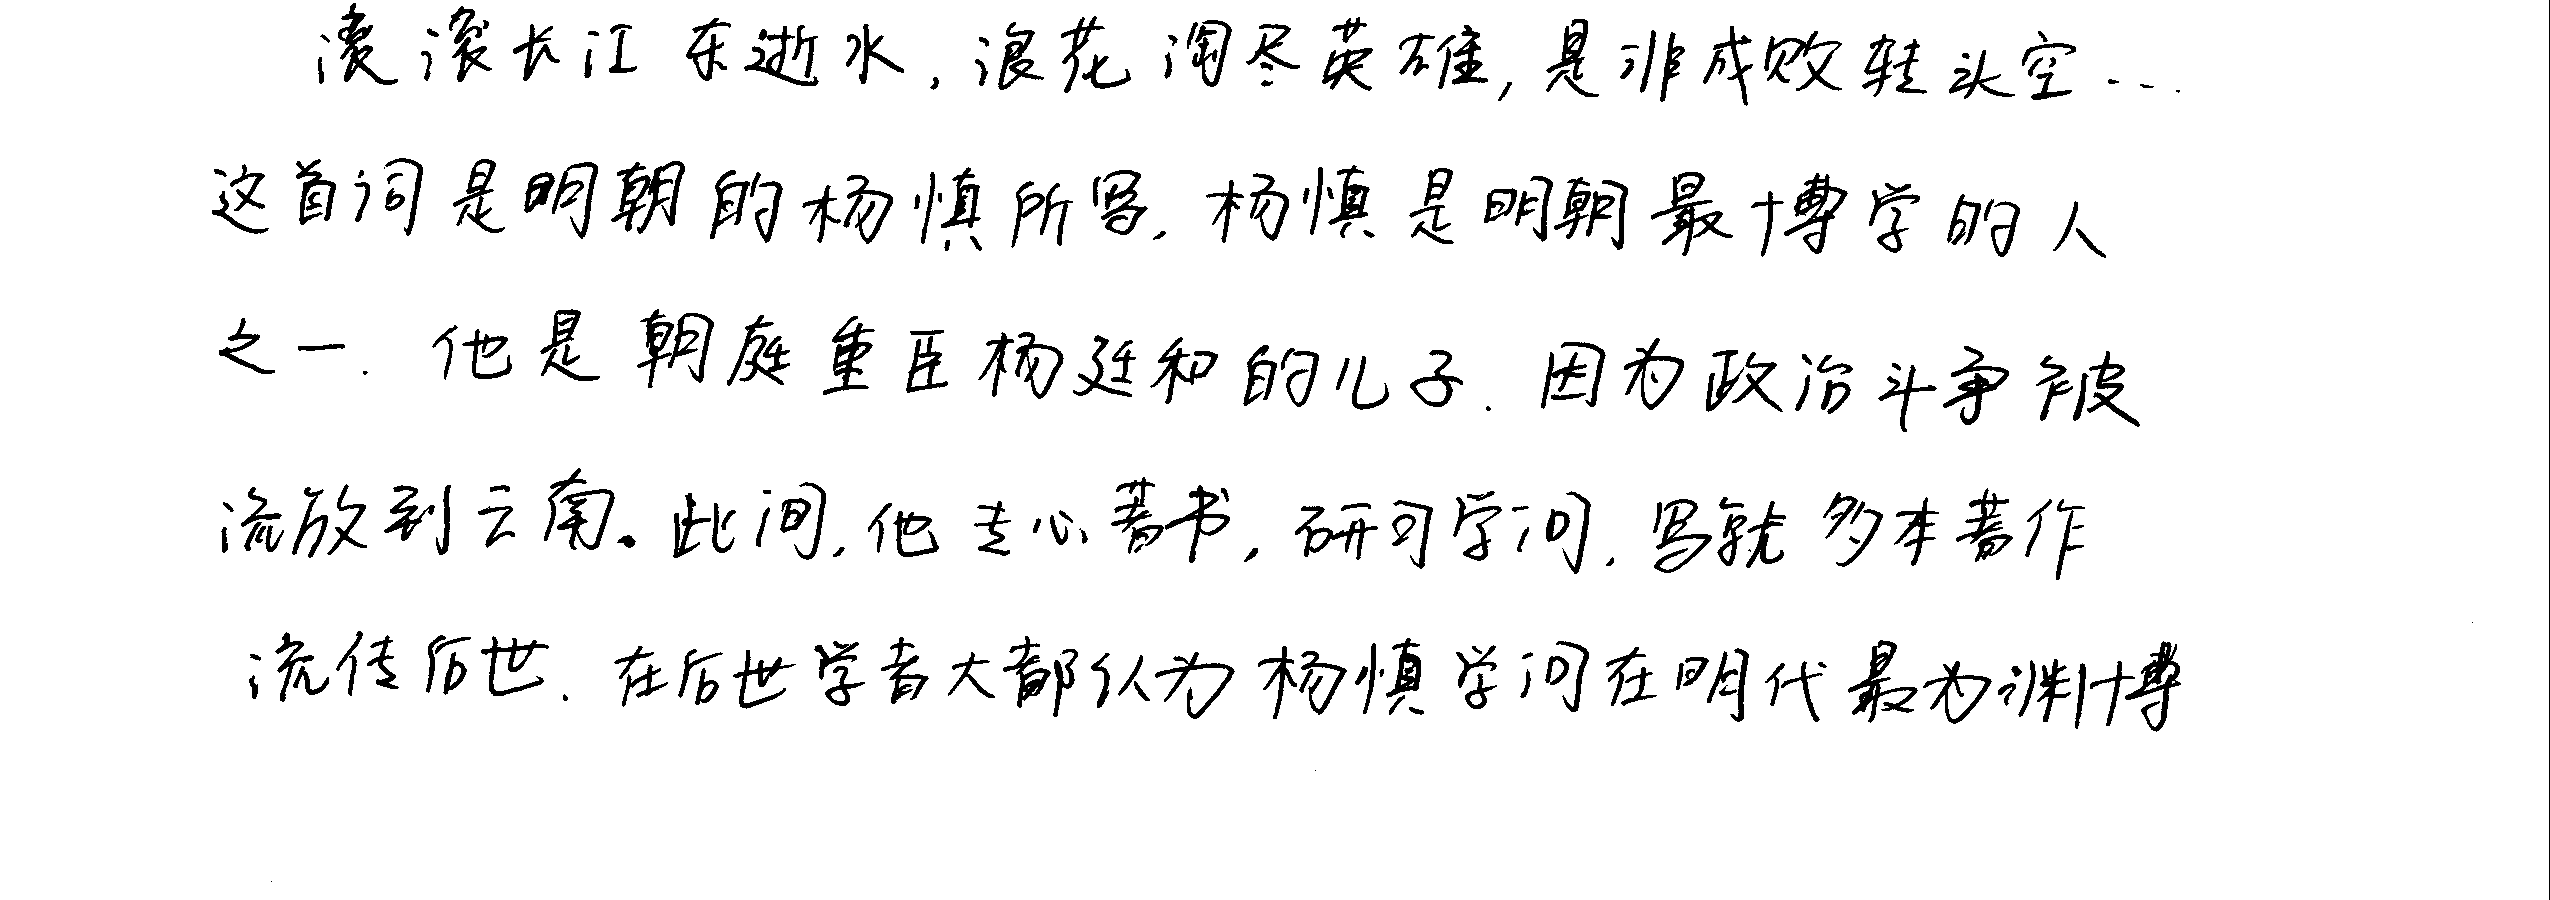 滚滚长江东逝水，浪花淘尽英雄，是非成败转头空...
这首词是明朝的杨慎所写，杨慎是明朝最博学的人
之一．他是朝庭重臣杨廷和的儿子．因为政治斗争被
流放到云南。此间，他专心著书，研习学问，写就多本著作
流传后世．在后世学者大都认为杨慎学问在明代最为渊博